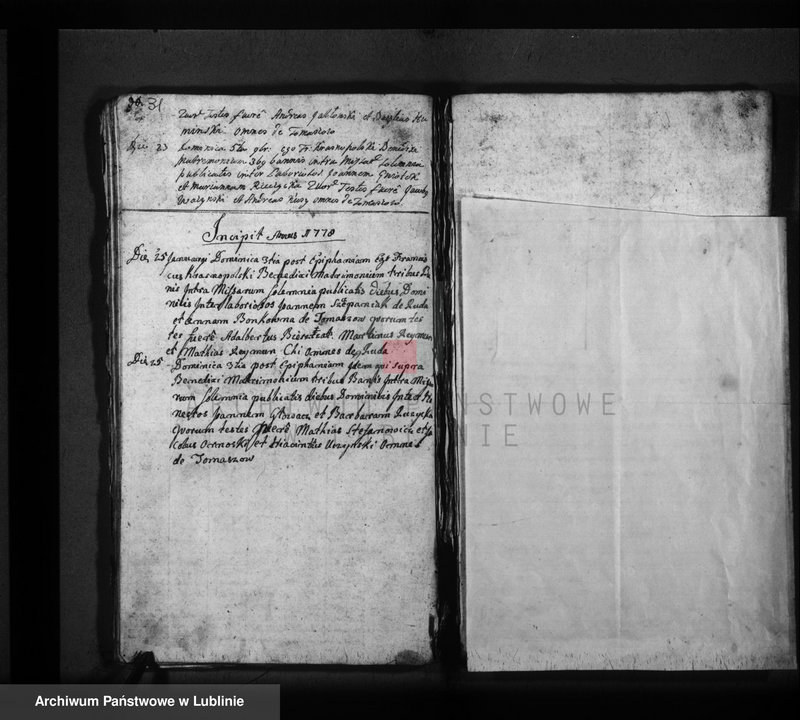 31
Testes fuere Andreas Jabłonski et Basilius Hu
minski omnes de Tomaszow
Die 23 Dominica 5ta 9br: ego Fr: Krasnopolski Benedixi
Matrimonium 3bq bannis intra Missar solemnia
publicatis inter Laboriosos Joannem
et Mariannam Testes fuere
et Andreas omnes de Tomaszow.
Incipit Annus 1778
Die 25 Januarij Dominica 3tia post Epiphaniam Ego Francis
cus Krasnopolski Benedixi Matrimonium tribus Ba
nis Intra Missarum solemnia publicatis diebus Domi
nilis Inter Laboriosos Joannem Szeparniak de Ruda
et Annam Bonkowna de Tomaszow quorum tes
tes fuere Adalbertus Martinus Reyman
et Mathias Reyman Chi Omines de Ruda
Die 25 Dominica 3tia post Epiphaniam Idem qui supra
Benedixi Matrimonium tribus Banis Intra Missa
rum solemnia publicatis diebus Dominilis Inter Ho
nestos Joannem et Barbaram Ruzycka
quorum testes fuere Mathias Stefanowicz et Ni
colaus et Hiacinthus Urzynski Omines
de Tomaszow
PAŃSTWOWE
LUBLINIE
Archiwum Państwowe w Lublinie